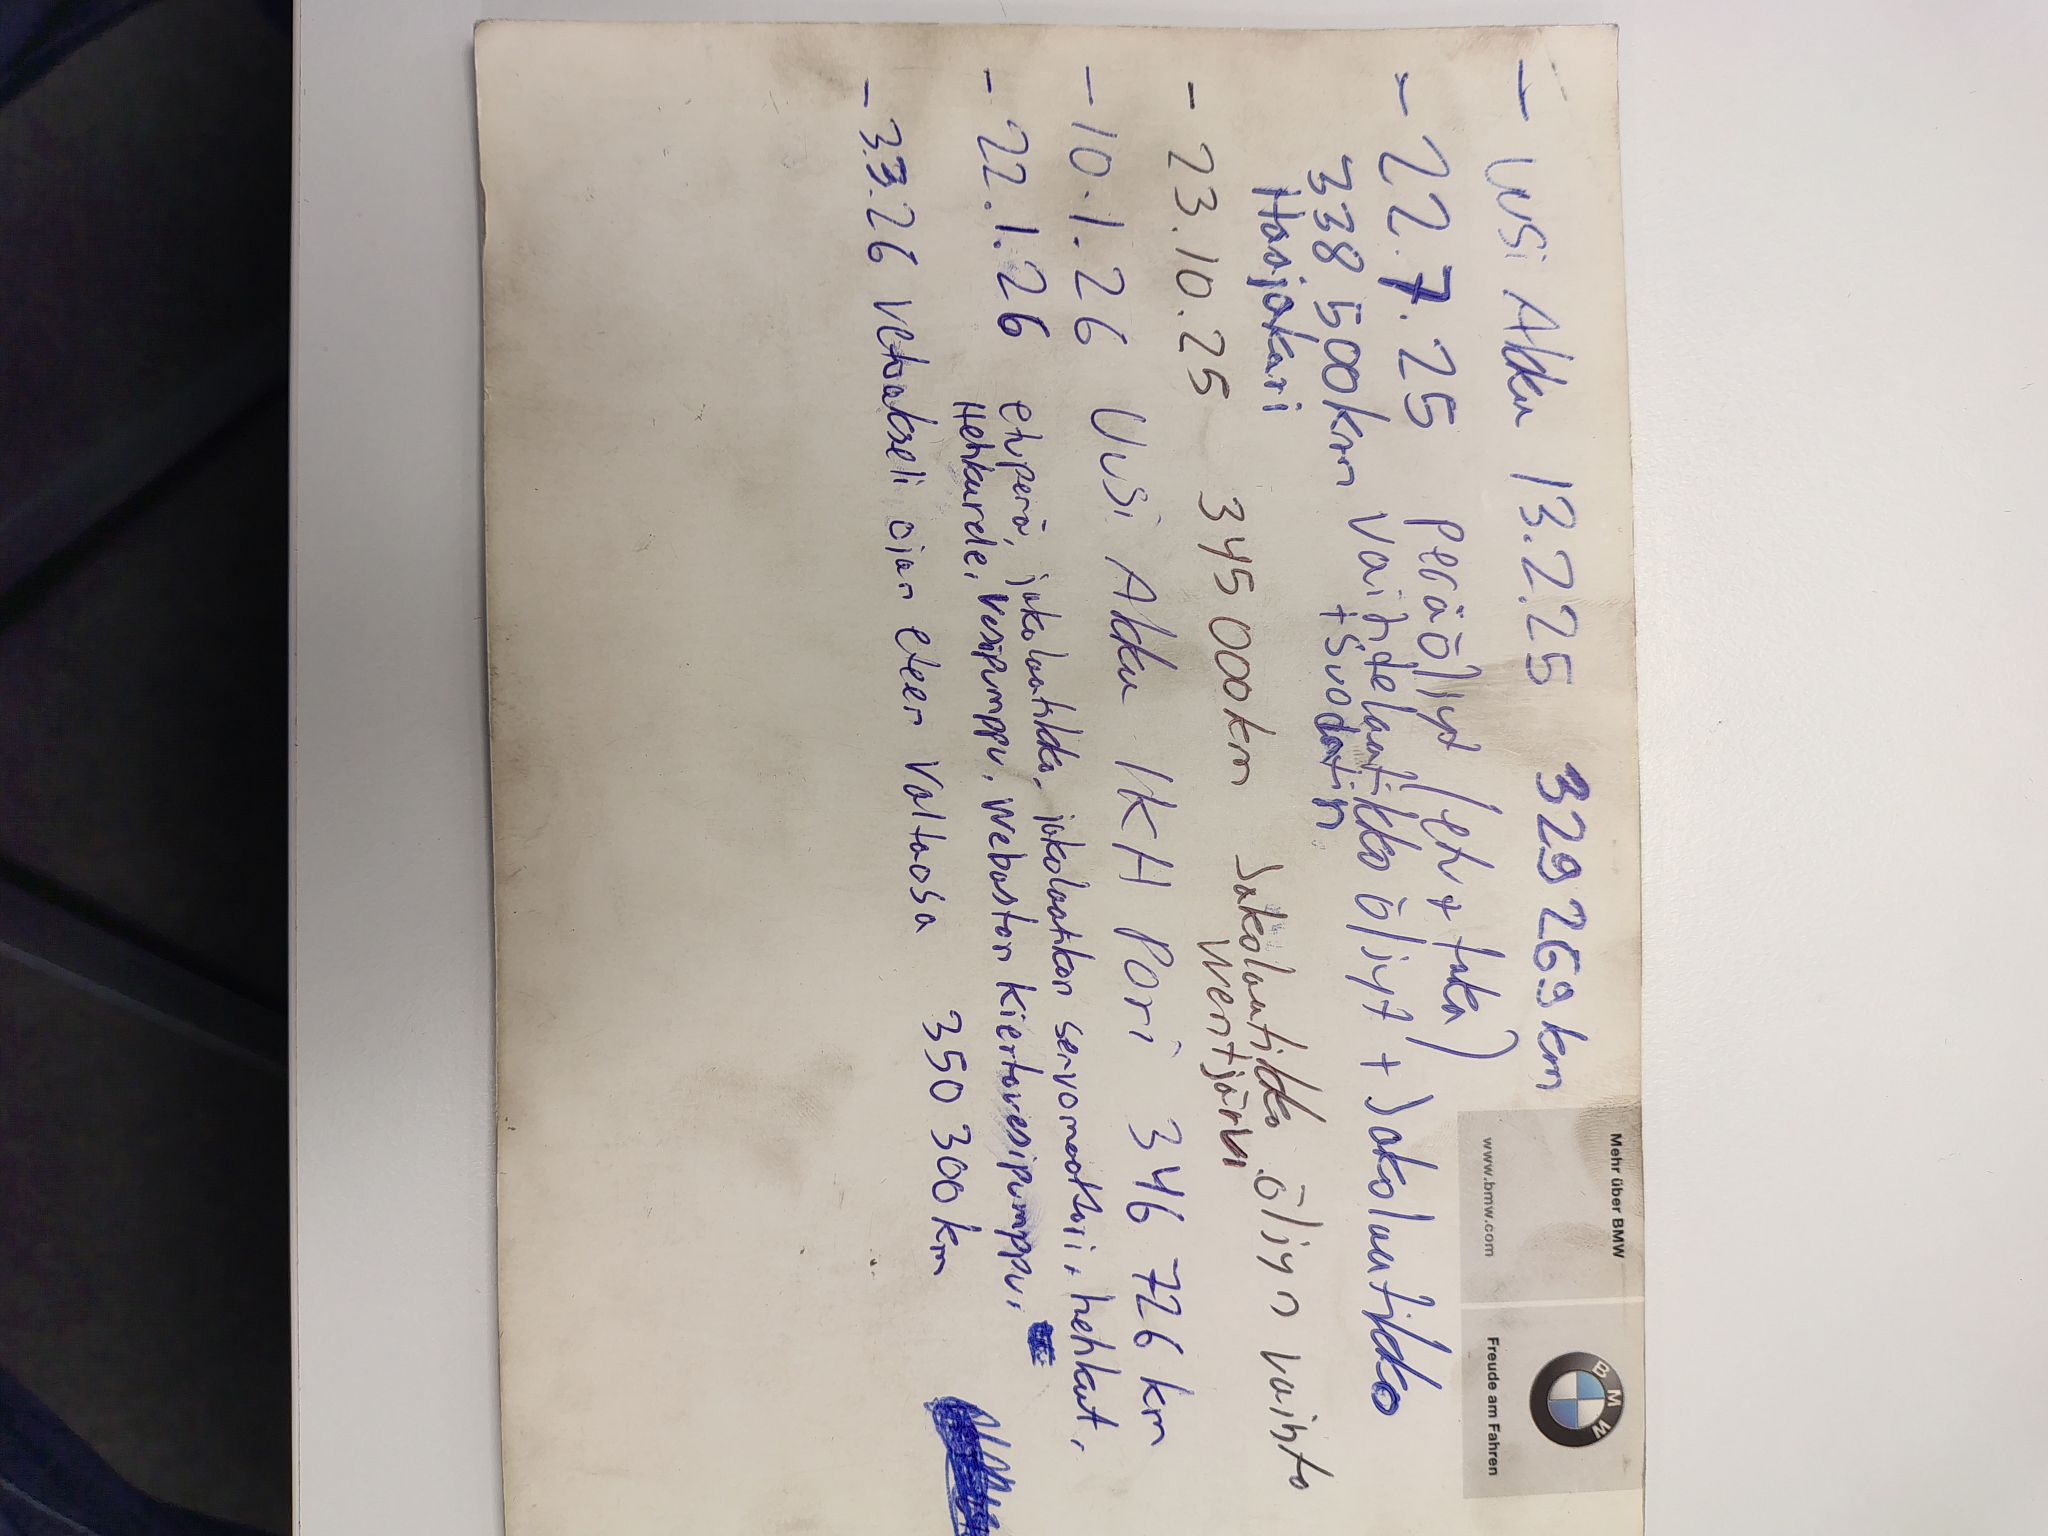 Mehr über BMW
www.bmw.com
Freude am Fahren
BMW
- Uusi Akku 13.2.25 329 269 km
- 22.7.25 peräöljyt (etu + taka)
338 500km Vaihdelaatikko öljyt + Jakolaatikko
+ Suodatin
Haajakari
- 23.10.25 345 000km Jakolaatikko öljyn vaihto
Wentjärvi
- 10.1.26 Uusi Akku IKH Pori 346 726 km
- 22.1.26 etuperä, jakolaatikko, jakolaatikon servomoottori, hehkut,
Hehkurele, vesipumppu, webaston kiertovesipumppu,
- 3.3.26 Vetoakseli ojan eteen valtaosa 350 300 km